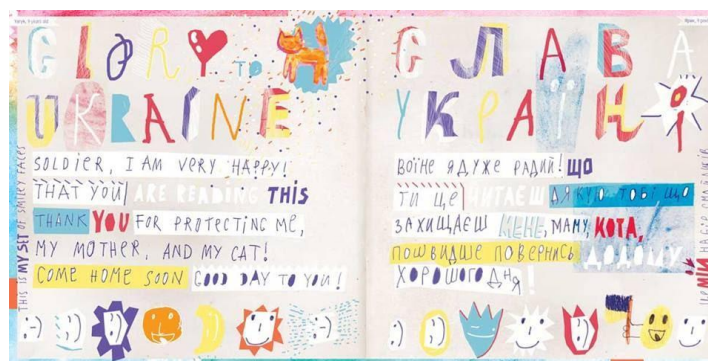 GLORY TO
UKRAINE
SOLDIER, I AM VERY HAPPY!
THAT YOU ARE READING THIS
THANK YOU FOR PROTECTING ME,
MY MOTHER, AND MY CAT!
COME HOME SOON GOOD DAY TO YOU!
THIS IS MY SET OF SMILEY FACES
СЛАВА
УКРАЇНІ
ВОЇНЕ Я ДУЖЕ РАДИЙ! ЩО
ТИ ЦЕ ЧИТАЄШ ДЯКУЮ ТОБІ ЩО
ЗАХИЩАЄШ МЕНЕ, МАМУ, КОТА,
ПОШВИДШЕ ПОВЕРНИСЬ ДОДОМУ
ХОРОШОГО ДНЯ!
ЦЕ МІЙ НАБІР СМАЙЛИКІВ